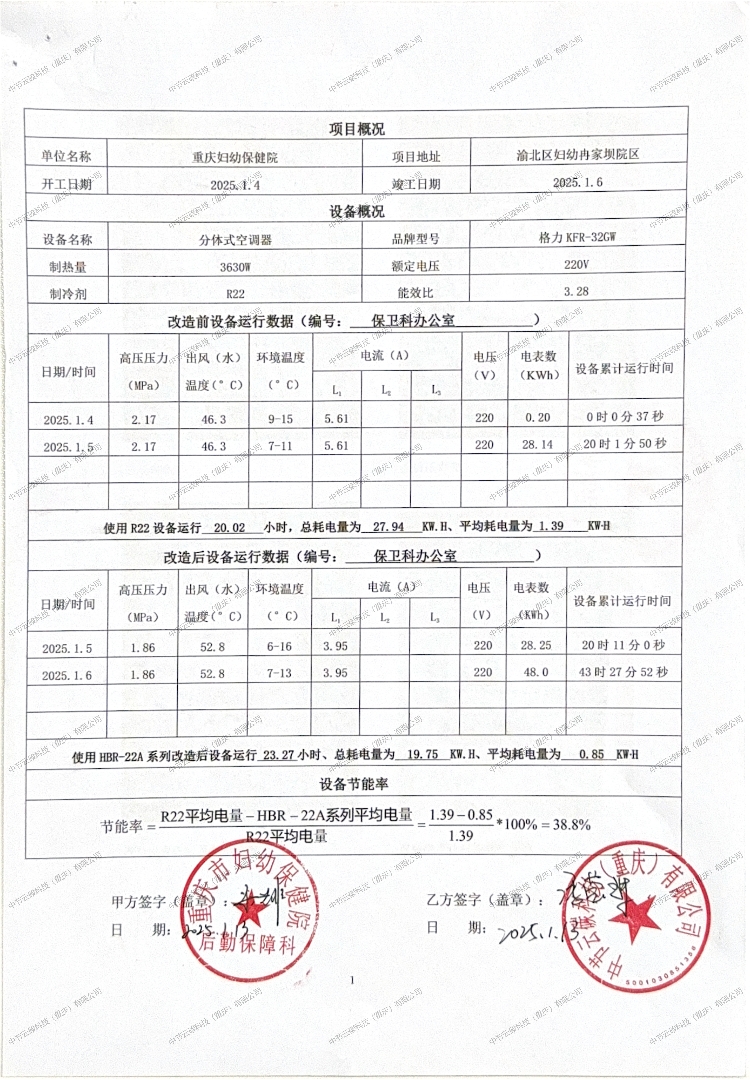 项目概况
单位名称 重庆妇幼保健院 项目地址 渝北区妇幼冉家坝院区
开工日期 2025.1.4 竣工日期 2025.1.6
设备概况
设备名称 分体式空调器 品牌型号 格力 KFR-32GW
制热量 3630W 额定电压 220V
制冷剂 R22 能效比 3.28
改造前设备运行数据（编号： 保卫科办公室 ）
日期/时间 高压压力（MPa） 出风（水）温度(°C) 环境温度（°C） 电流（A） L₁ L₂ L₃ 电压（V） 电表数（KWh） 设备累计运行时间
2025.1.4 2.17 46.3 9-15 5.61 220 0.20 0时0分37秒
2025.1.5 2.17 46.3 7-11 5.61 220 28.14 20时1分50秒
使用 R22 设备运行 20.02 小时，总耗电量为 27.94 KW.H、平均耗电量为 1.39 KW·H
改造后设备运行数据（编号： 保卫科办公室 ）
日期/时间 高压压力（MPa） 出风（水）温度(°C) 环境温度（°C） 电流（A） L₁ L₂ L₃ 电压（V） 电表数（KWh） 设备累计运行时间
2025.1.5 1.86 52.8 6-16 3.95 220 28.25 20时11分0秒
2025.1.6 1.86 52.8 7-13 3.95 220 48.0 43时27分52秒
使用 HBR-22A 系列改造后设备运行 23.27 小时、总耗电量为 19.75 KW.H、平均耗电量为 0.85 KW·H
设备节能率
节能率 = (R22平均电量－HBR－22A系列平均电量)/R22平均电量 = (1.39－0.85)/1.39 *100% = 38.8%
甲方签字（盖章）： 乙方签字（盖章）：
日 期: 2025.1.13 日 期: 2025.1.13
重庆市妇幼保健院
后勤保障科
中节云碳科技（重庆）有限公司
1